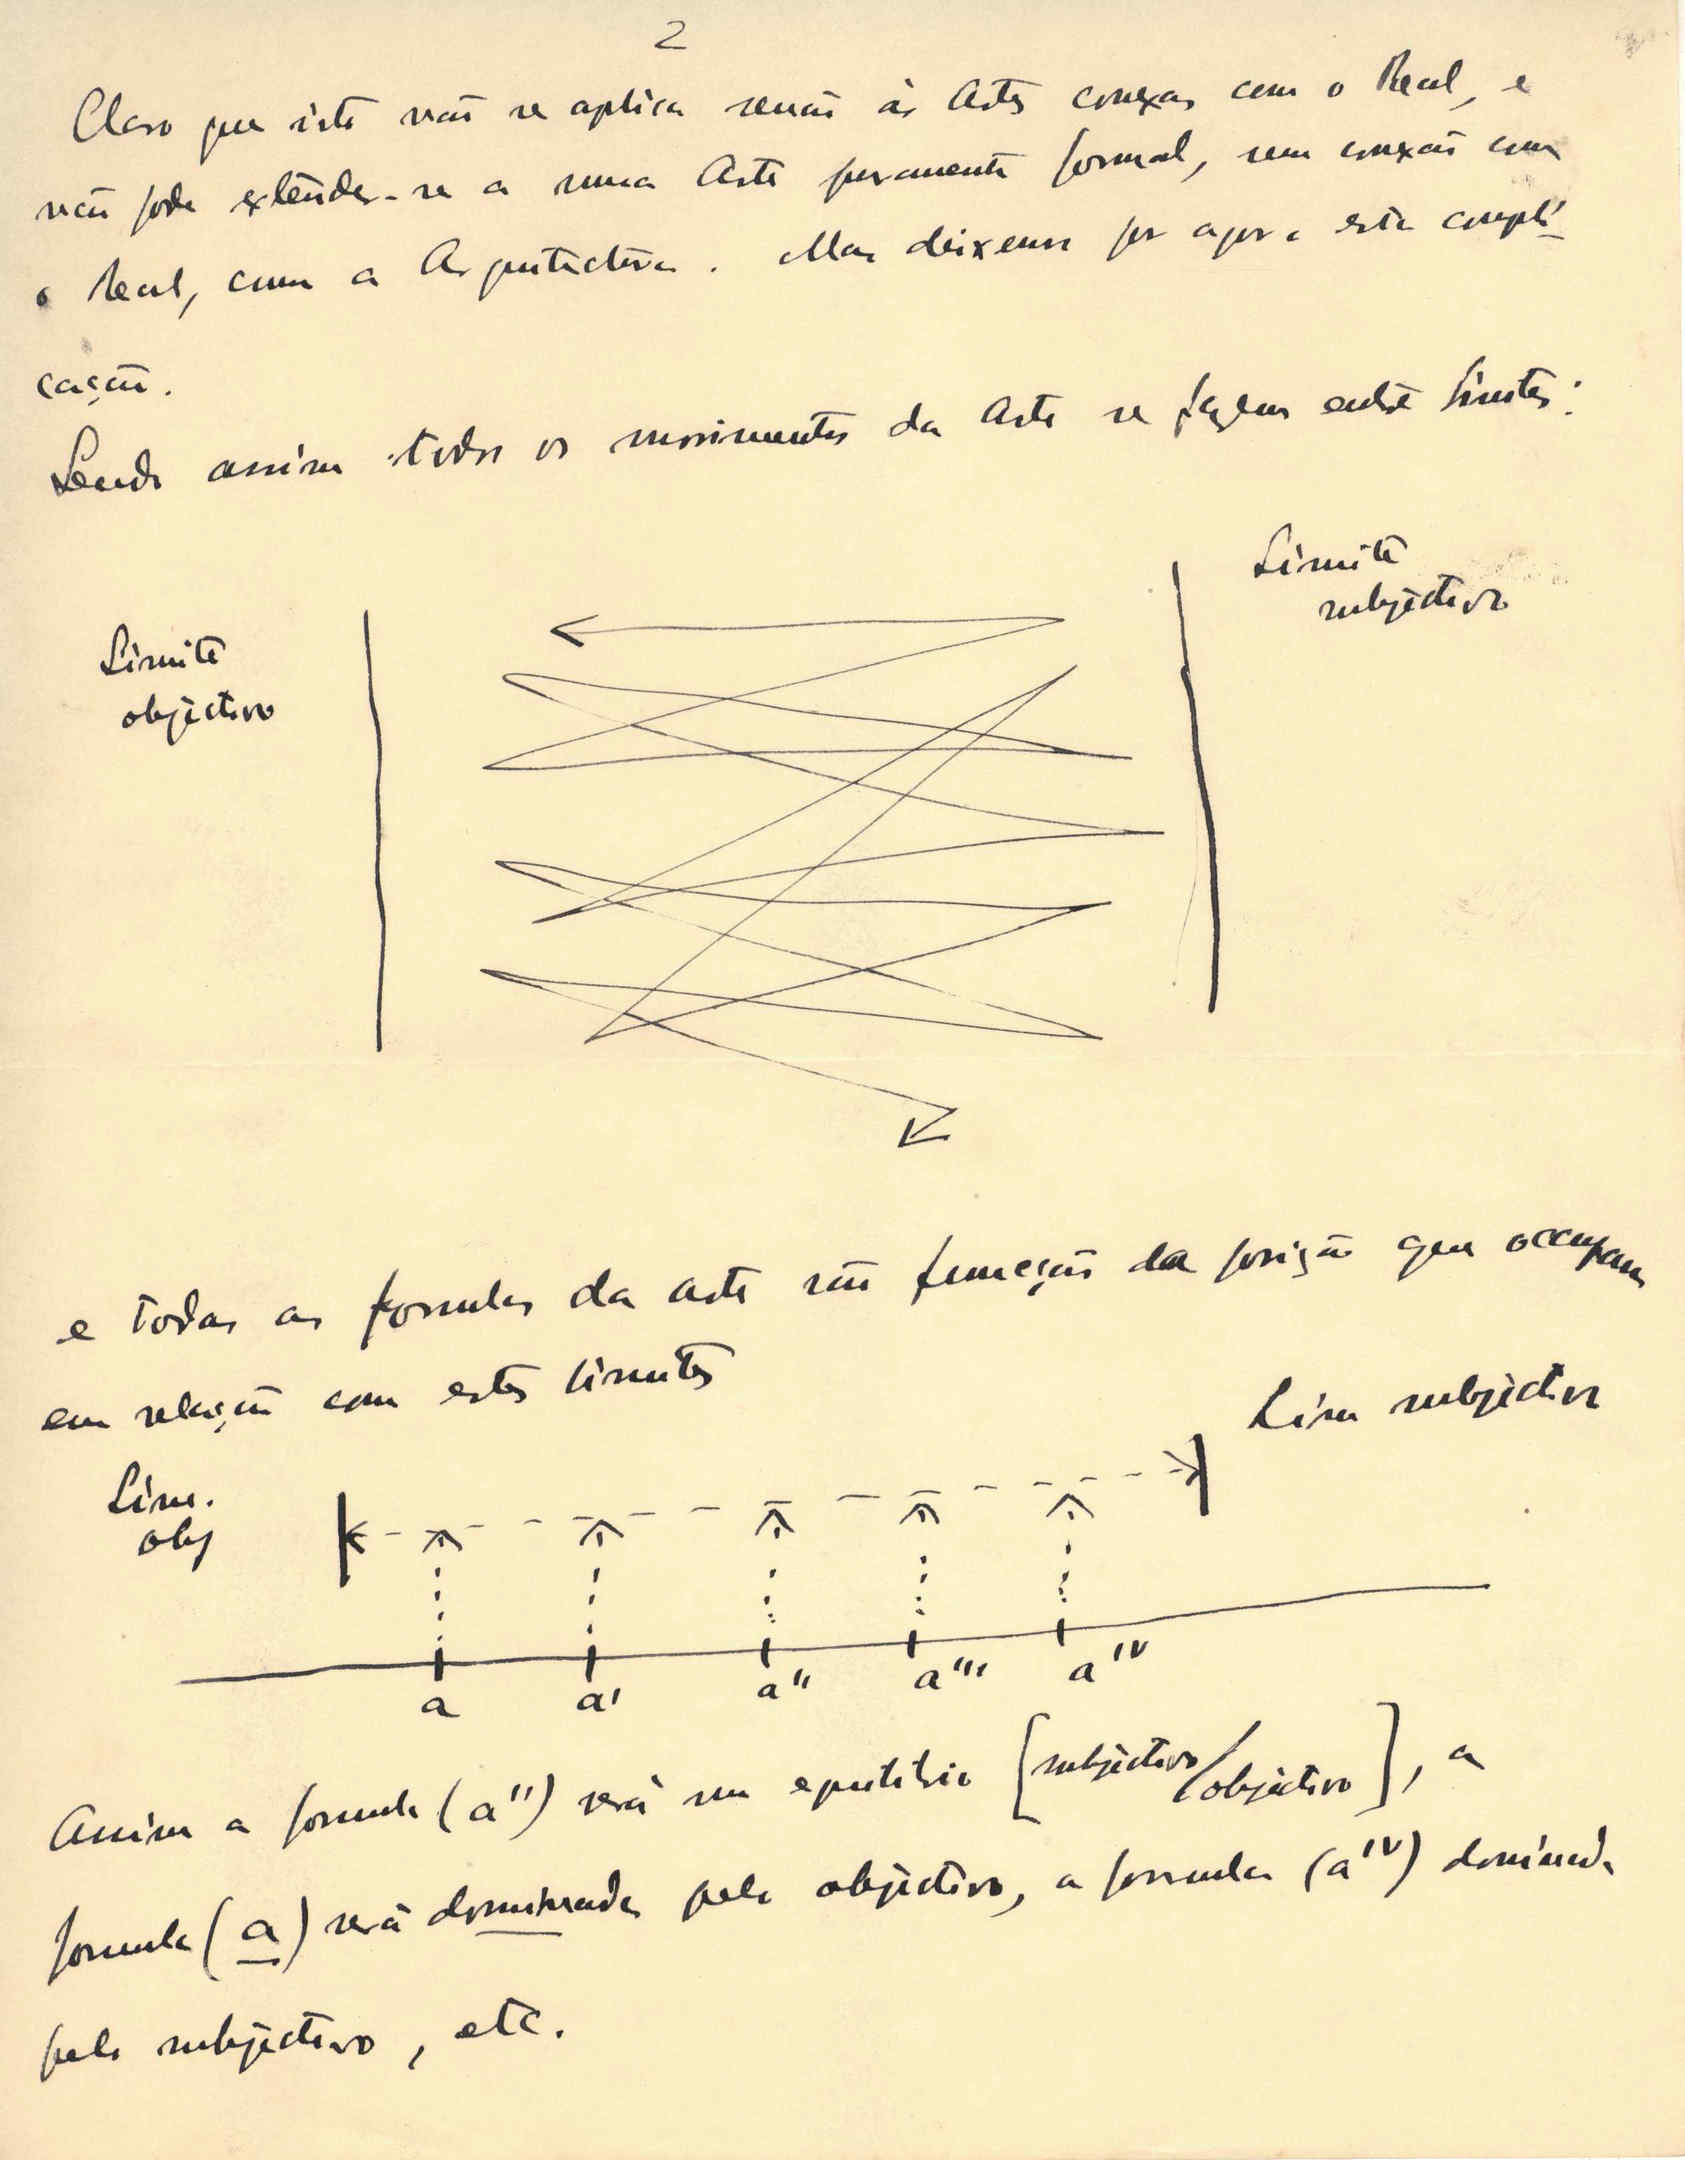 2
Claro que isto não se aplica senão às Artes conexas com o Real, e
não pode extender-se a uma Arte puramente formal, sem conexão com
o Real, como a Arquitectura. Mas deixemos por agora esta compli-
cação.
Sendo assim todos os movimentos da Arte se fazem entre limites:
Limite
subjectivo
Limite
objectivo
e todas as formulas da arte são funcção da posição que occupam
em relação com estes limites
Lim subjectivo
Lim.
obj
a a' a'' a''' a'ᵛ
Assim a formula (a'') será um equilibrio [subjectivo/objectivo], a
formula (a) será dominada pelo objectivo, a formula (a'ᵛ) dominada
pelo subjectivo, etc.